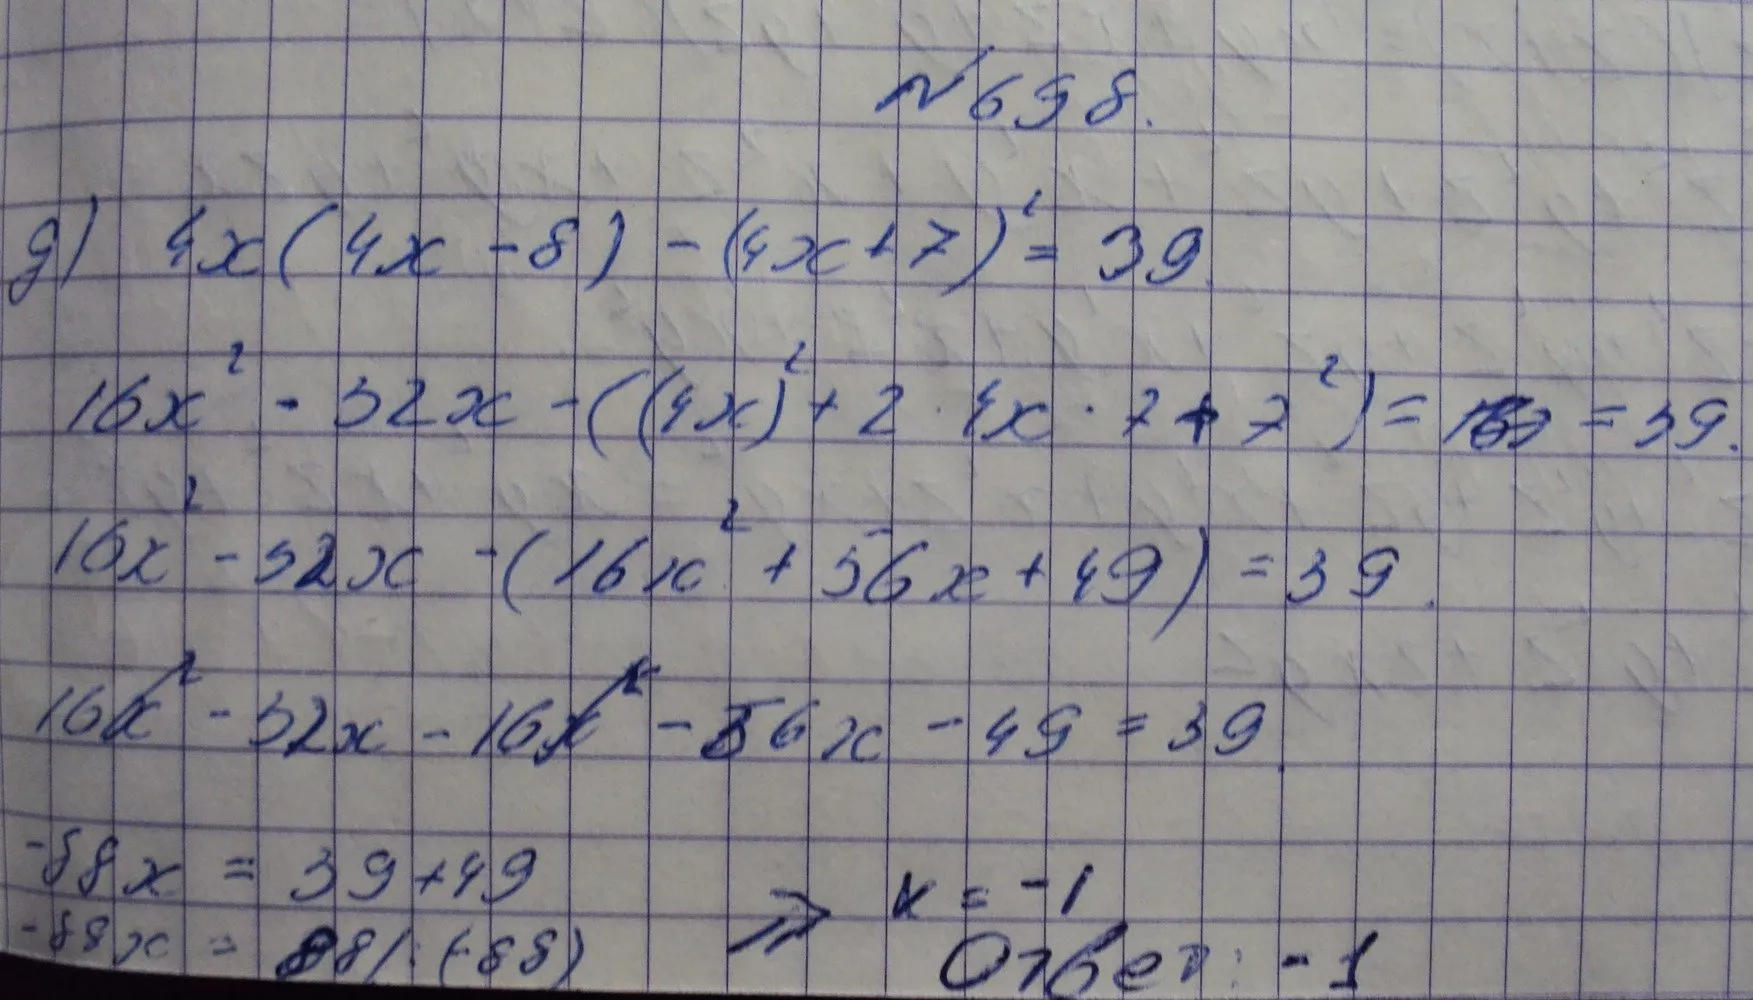 №698.
д) 4x(4x-8)-(4x+7)²=39.
16x²-32x-((4x)²+2·4x·7+7²)= =39.
16x²-32x-(16x²+56x+49)=39.
16x²-32x-16x²-56x-49=39.
-88x=39+49
-88x=88/:(-88) ⇒ x=-1
Ответ: -1